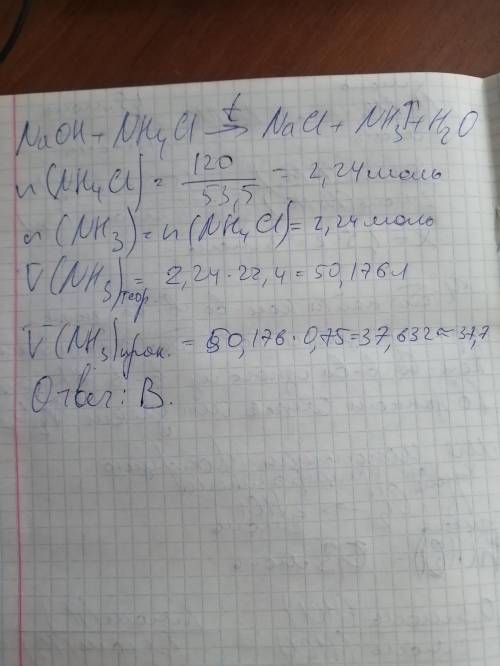 NaOH + NH4Cl t→ NaCl + NH3↑ + H2O
n(NH4Cl) = 120/53,5 = 2,24 моль
n(NH3) = n(NH4Cl) = 2,24 моль
V(NH3)теор = 2,24 · 22,4 = 50,176 л
V(NH3)прак. = 50,176 · 0,75 = 37,632 ≈ 37,7
Ответ: В.